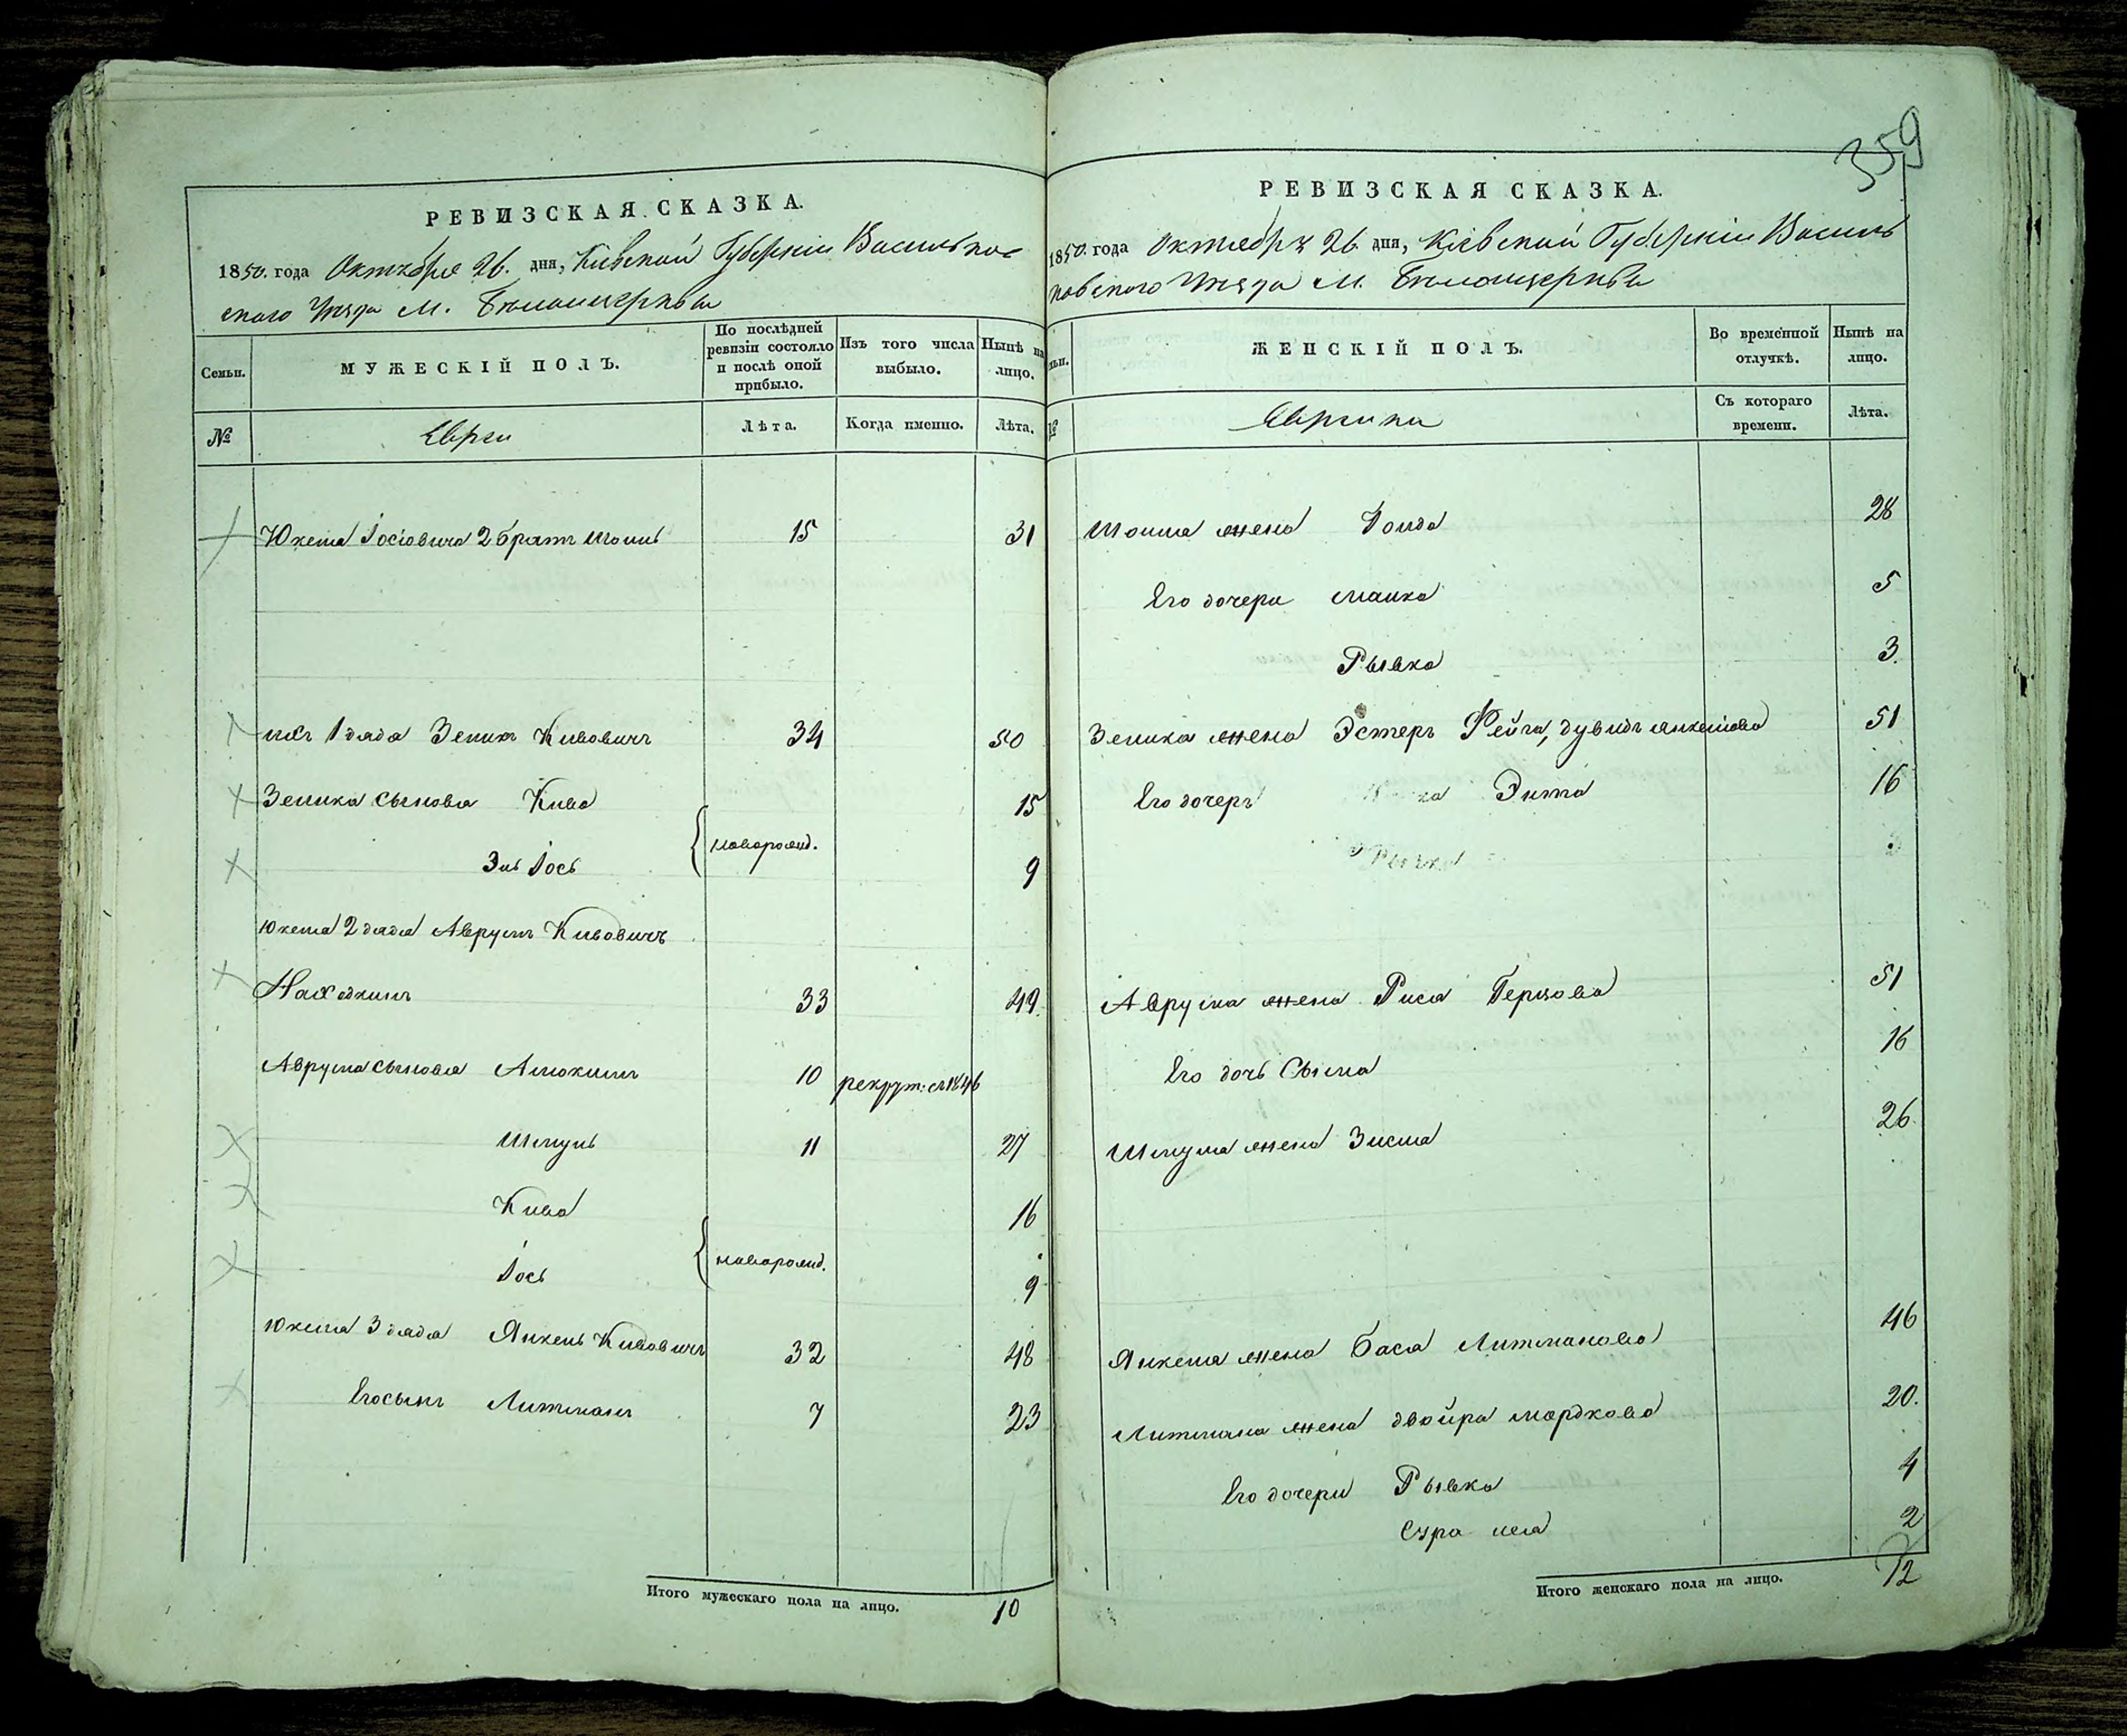 359
РЕВИЗСКАЯ СКАЗКА.
1850. года Октября 26. дня, Кіевской Губерніи Васильков
скаго Уезда М. Белоцеркви
Семьи.
МУЖЕСКІЙ ПОЛЪ.
По послѣдней ревизіи состояло и послѣ оной прибыло.
Изъ того числа выбыло.
Нынѣ на лицо.
№
Евреи
Лѣта.
Когда именно.
Лѣта.
Юкеля Іосіовича 2 братъ Шоиль 15 31
1 дядя Зеликъ Кивовичъ 34 50
Зелика сыновья Кива 15
новорожд.
Іось 9
Юкеля 2 дядя Аврумъ Кивовичъ
33 49.
Аврума сыновья 10 рекрут: съ 1846
Шмуль 11 27
Кива 16
новорожд.
Іось 9
Юкеля 3 дядя Янкель Кивовичъ 32 48
Его сынъ Литманъ 7 23
Итого мужескаго пола на лицо. 10
РЕВИЗСКАЯ СКАЗКА.
1850. года Октября 26 дня, Кіевской Губерніи Василь
ковского Уезда М. Белоцеркви
ЖЕНСКІЙ ПОЛЪ.
Во временной отлучкѣ.
Нынѣ на лицо.
№
Еврейки
Съ котораго времени.
Лѣта.
Шоиля жена 28
Его дочери Малка 5
Рывка 3.
Зелика жена Эстеръ Фейга, 51
Его дочери Энта 16
Аврума жена Рися Герцова 51
Его дочь Сыма 16
Шмуля жена Зисля 26
Янкеля жена Бася Литманова 46
Литмана жена двойра мордкова 20.
Его дочери Рывка 4
Сура 2
Итого женскаго пола на лицо. 12